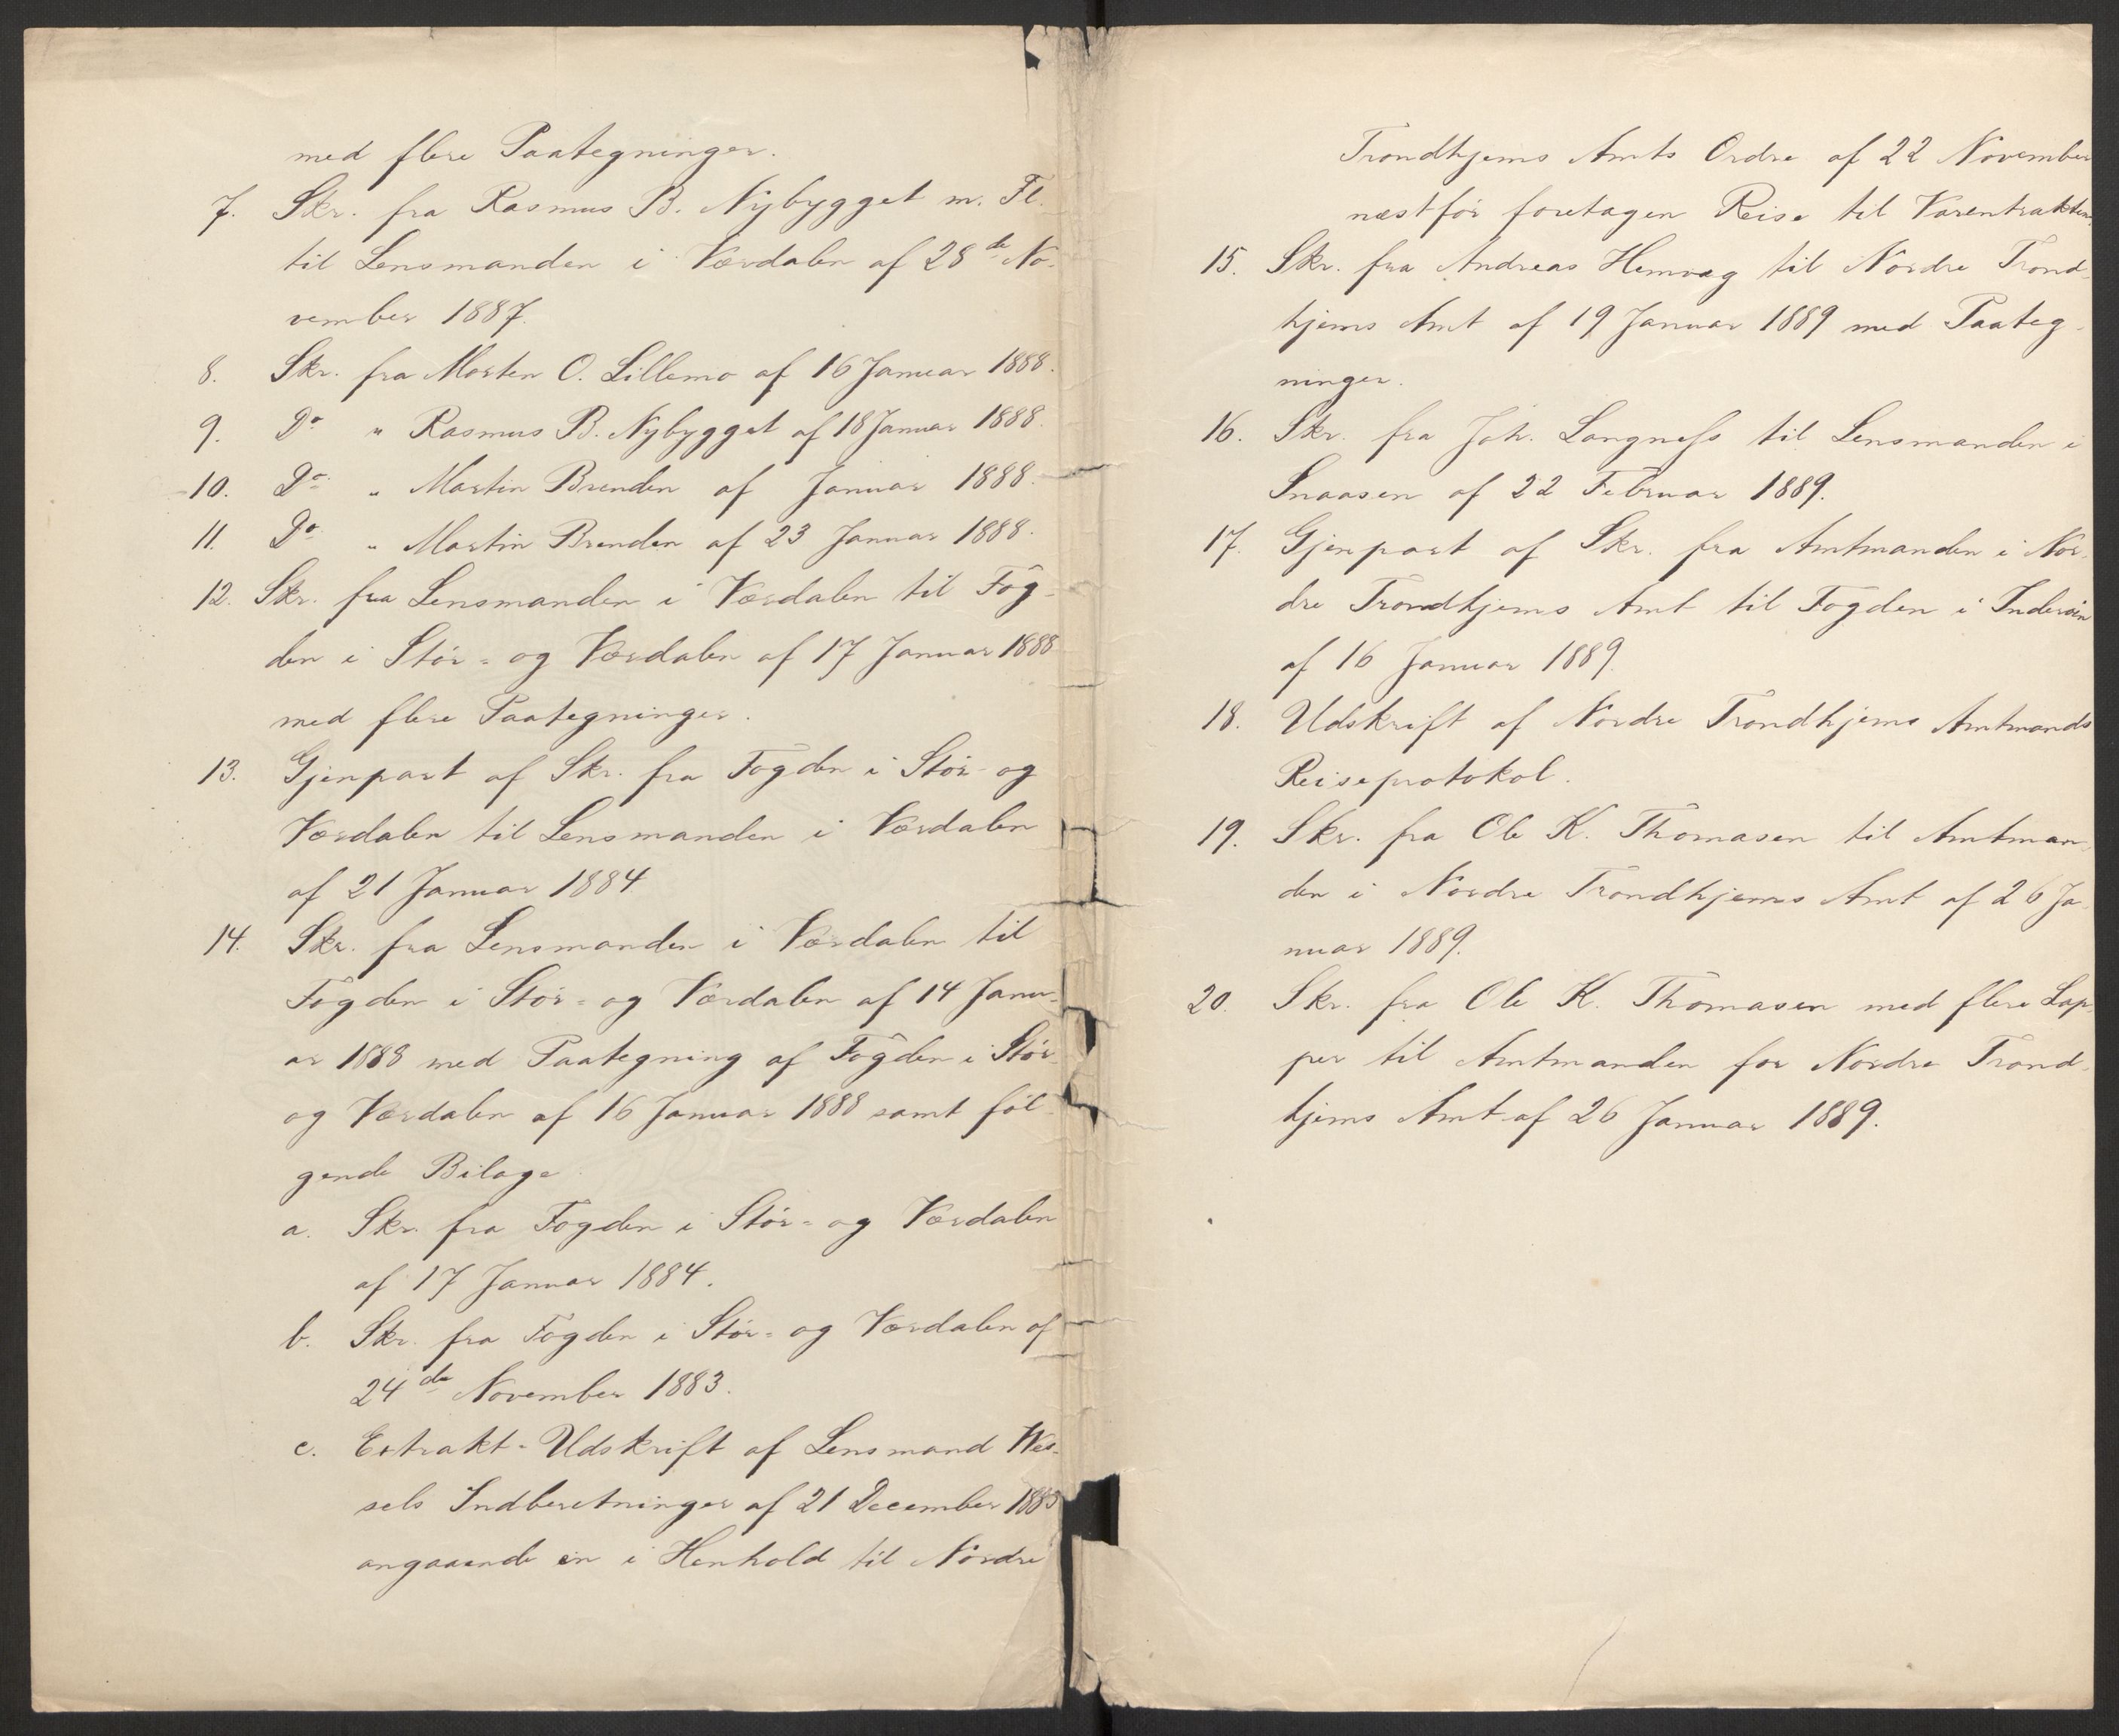 med flere Paategninger.
7. Skr. fra Rasmus B. Nybygget m. Fl.
til Lensmanden i Værdalen af 28de No-
vember 1887.
8. Skr. fra Morten O. Lillemo af 16 Januar 1888.
9. Do " Rasmus B. Nybygget af 18 Januar 1888.
10. Do " Martin Brenden af Januar 1888.
11. Do " Martin Brenden af 23 Januar 1888.
12. Skr. fra Lensmanden i Værdalen til Fog-
den i Stør- og Værdalen af 17 Januar 1888
med flere Paategninger.
13. Gjenpart af Skr. fra Fogden i Stør- og
Værdalen til Lensmanden i Værdalen
af 21 Januar 1884
14. Skr. fra Lensmanden i Værdalen til
Fogden i Stør- og Værdalen af 14 Janu-
ar 1888 med Paategning af Fogden i Stør-
og Værdalen af 16 Januar 1888 samt føl-
gende Bilage
a. Skr. fra Fogden i Stør- og Værdalen
af 17 Januar 1884.
b. Skr. fra Fogden i Stør- og Værdalen af
24de November 1883.
c. Extrakt-Udskrift af Lensmand Wes-
sels Indberetninger af 21 December 1883
angaaende en i Henhold til Nordre
Trondhjems Amts Ordre af 22 November
næstfør foretagen Reise til Værentrakten.
15. Skr. fra Andreas Hemvæg til Nordre Trond-
hjems Amt af 19 Januar 1889 med Paateg-
ninger.
16. Skr. fra Joh. Langness til Lensmanden i
Snaasen af 22 Februar 1889.
17. Gjenpart af Skr. fra Amtmanden i Nor-
dre Trondhjems Amt til Fogden i Inderøen
af 16 Januar 1889.
18. Udskrift af Nordre Trondhjems Amtmands
Reiseprotokol.
19. Skr. fra Ole K. Thomasen til Amtman-
den i Nordre Trondhjems Amt af 26 Ja-
nuar 1889.
20. Skr. fra Ole K. Thomasen med flere Lap-
per til Amtmanden for Nordre Trond-
hjems Amt af 26 Januar 1889.